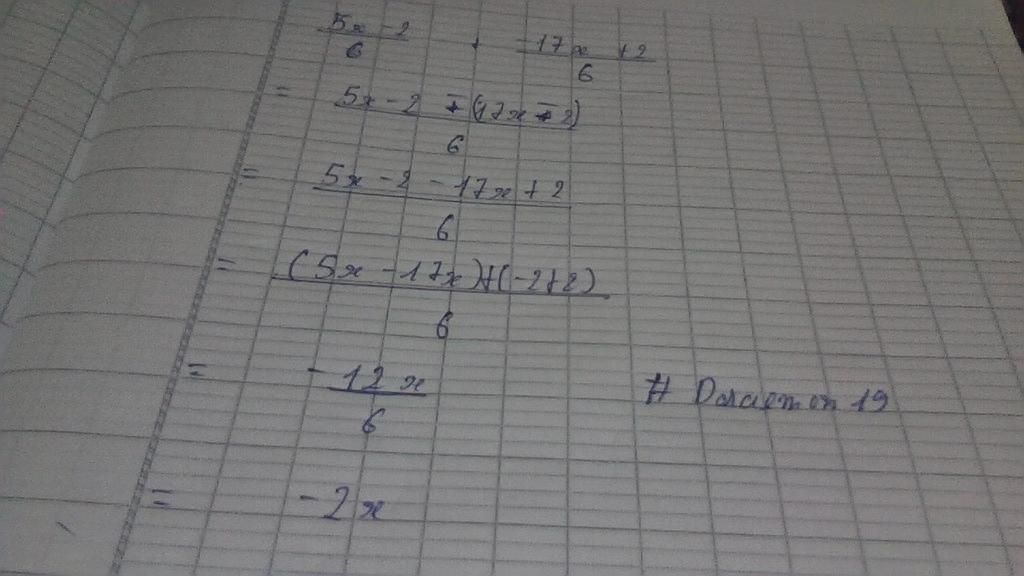 5x - 2 / 6 + -17x + 2 / 6
= 5x - 2 - (17x - 2) / 6
= 5x - 2 - 17x + 2 / 6
= (5x - 17x) + (-2+2) / 6
= - 12x / 6
# Doraemon 19
= - 2x